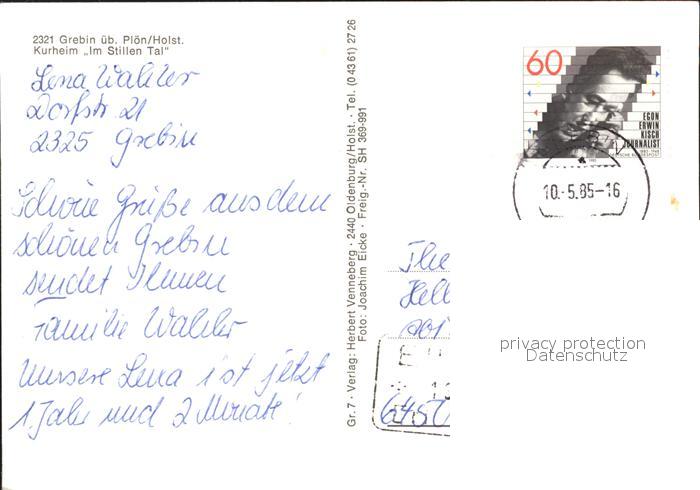 2321 Grebin üb. Plön/Holst.
Kurheim „Im Stillen Tal"
Lena Wahler
Dorfstr 21
2325 Grebin
Schöne Grüße aus dem
schönen Grebin
sendet Ihnen
Familie Wahler
Unsere Lena ist jetzt
1 Jahr und 2 Monate!
Gr. 7 · Verlag: Herbert Venneberg · 2440 Oldenburg/Holst. · Tel. (0 43 61) 27 26
Foto: Joachim Eicke · Freig.-Nr. SH 369-991
60
EGON
ERWIN
KISCH
JOURNALIST
1885-1948
DEUTSCHE BUNDESPOST
1985
10.-5.85-16
privacy protection
Datenschutz